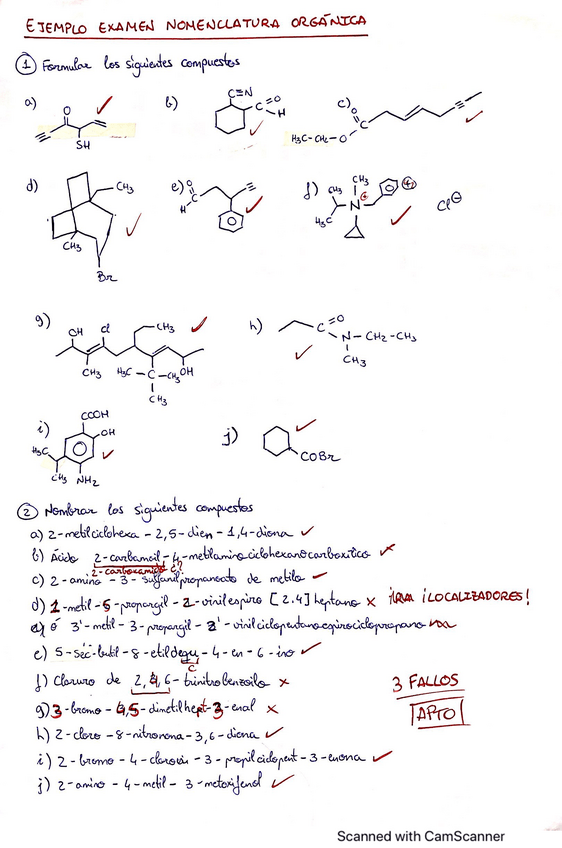 EJEMPLO EXAMEN NOMENCLATURA ORGÁNICA
1 Formular los siguientes compuestos
a) O SH
b) C≡N C=O H
c) O H₃C-CH₂-O
d) CH₃ CH₃ Br
e) O C H
f) CH₃ CH₃ H₃C N ⊕ Cl⊖
g) OH Cl CH₃ CH₃ H₃C-C-CH₃ OH CH₃
h) C=O N-CH₂-CH₃ CH₃
i) COOH OH H₃C CH₃ NH₂
j) COBr
2 Nombrar los siguientes compuestos
a) 2-metilciclohexa-2,5-dien-1,4-diona
b) Ácido 2-carbamoil-4-metilaminociclohexanocarboxílico
2-carboxamido ¿?
c) 2-amino-3-sulfanilpropanoato de metilo
d) 1-metil-5-propargil-2-vinilespiro[2.4]heptano x ¡LOCALIZADORES!
ó 3'-metil-3-propargil-2'-vinilciclopentanoespirociclopropano
e) 5-sec-butil-8-etildequ-4-en-6-ino
c
f) Cloruro de 2,4,6-trinitrobenzoilo x
g) 3-bromo-4,5-dimetilhept-3-enal x
h) 2-cloro-8-nitronona-3,6-diena
i) 2-bromo-4-cloro-3-propilciclopent-3-enona
j) 2-amino-4-metil-3-metoxifenol
3 FALLOS
APTO
Scanned with CamScanner